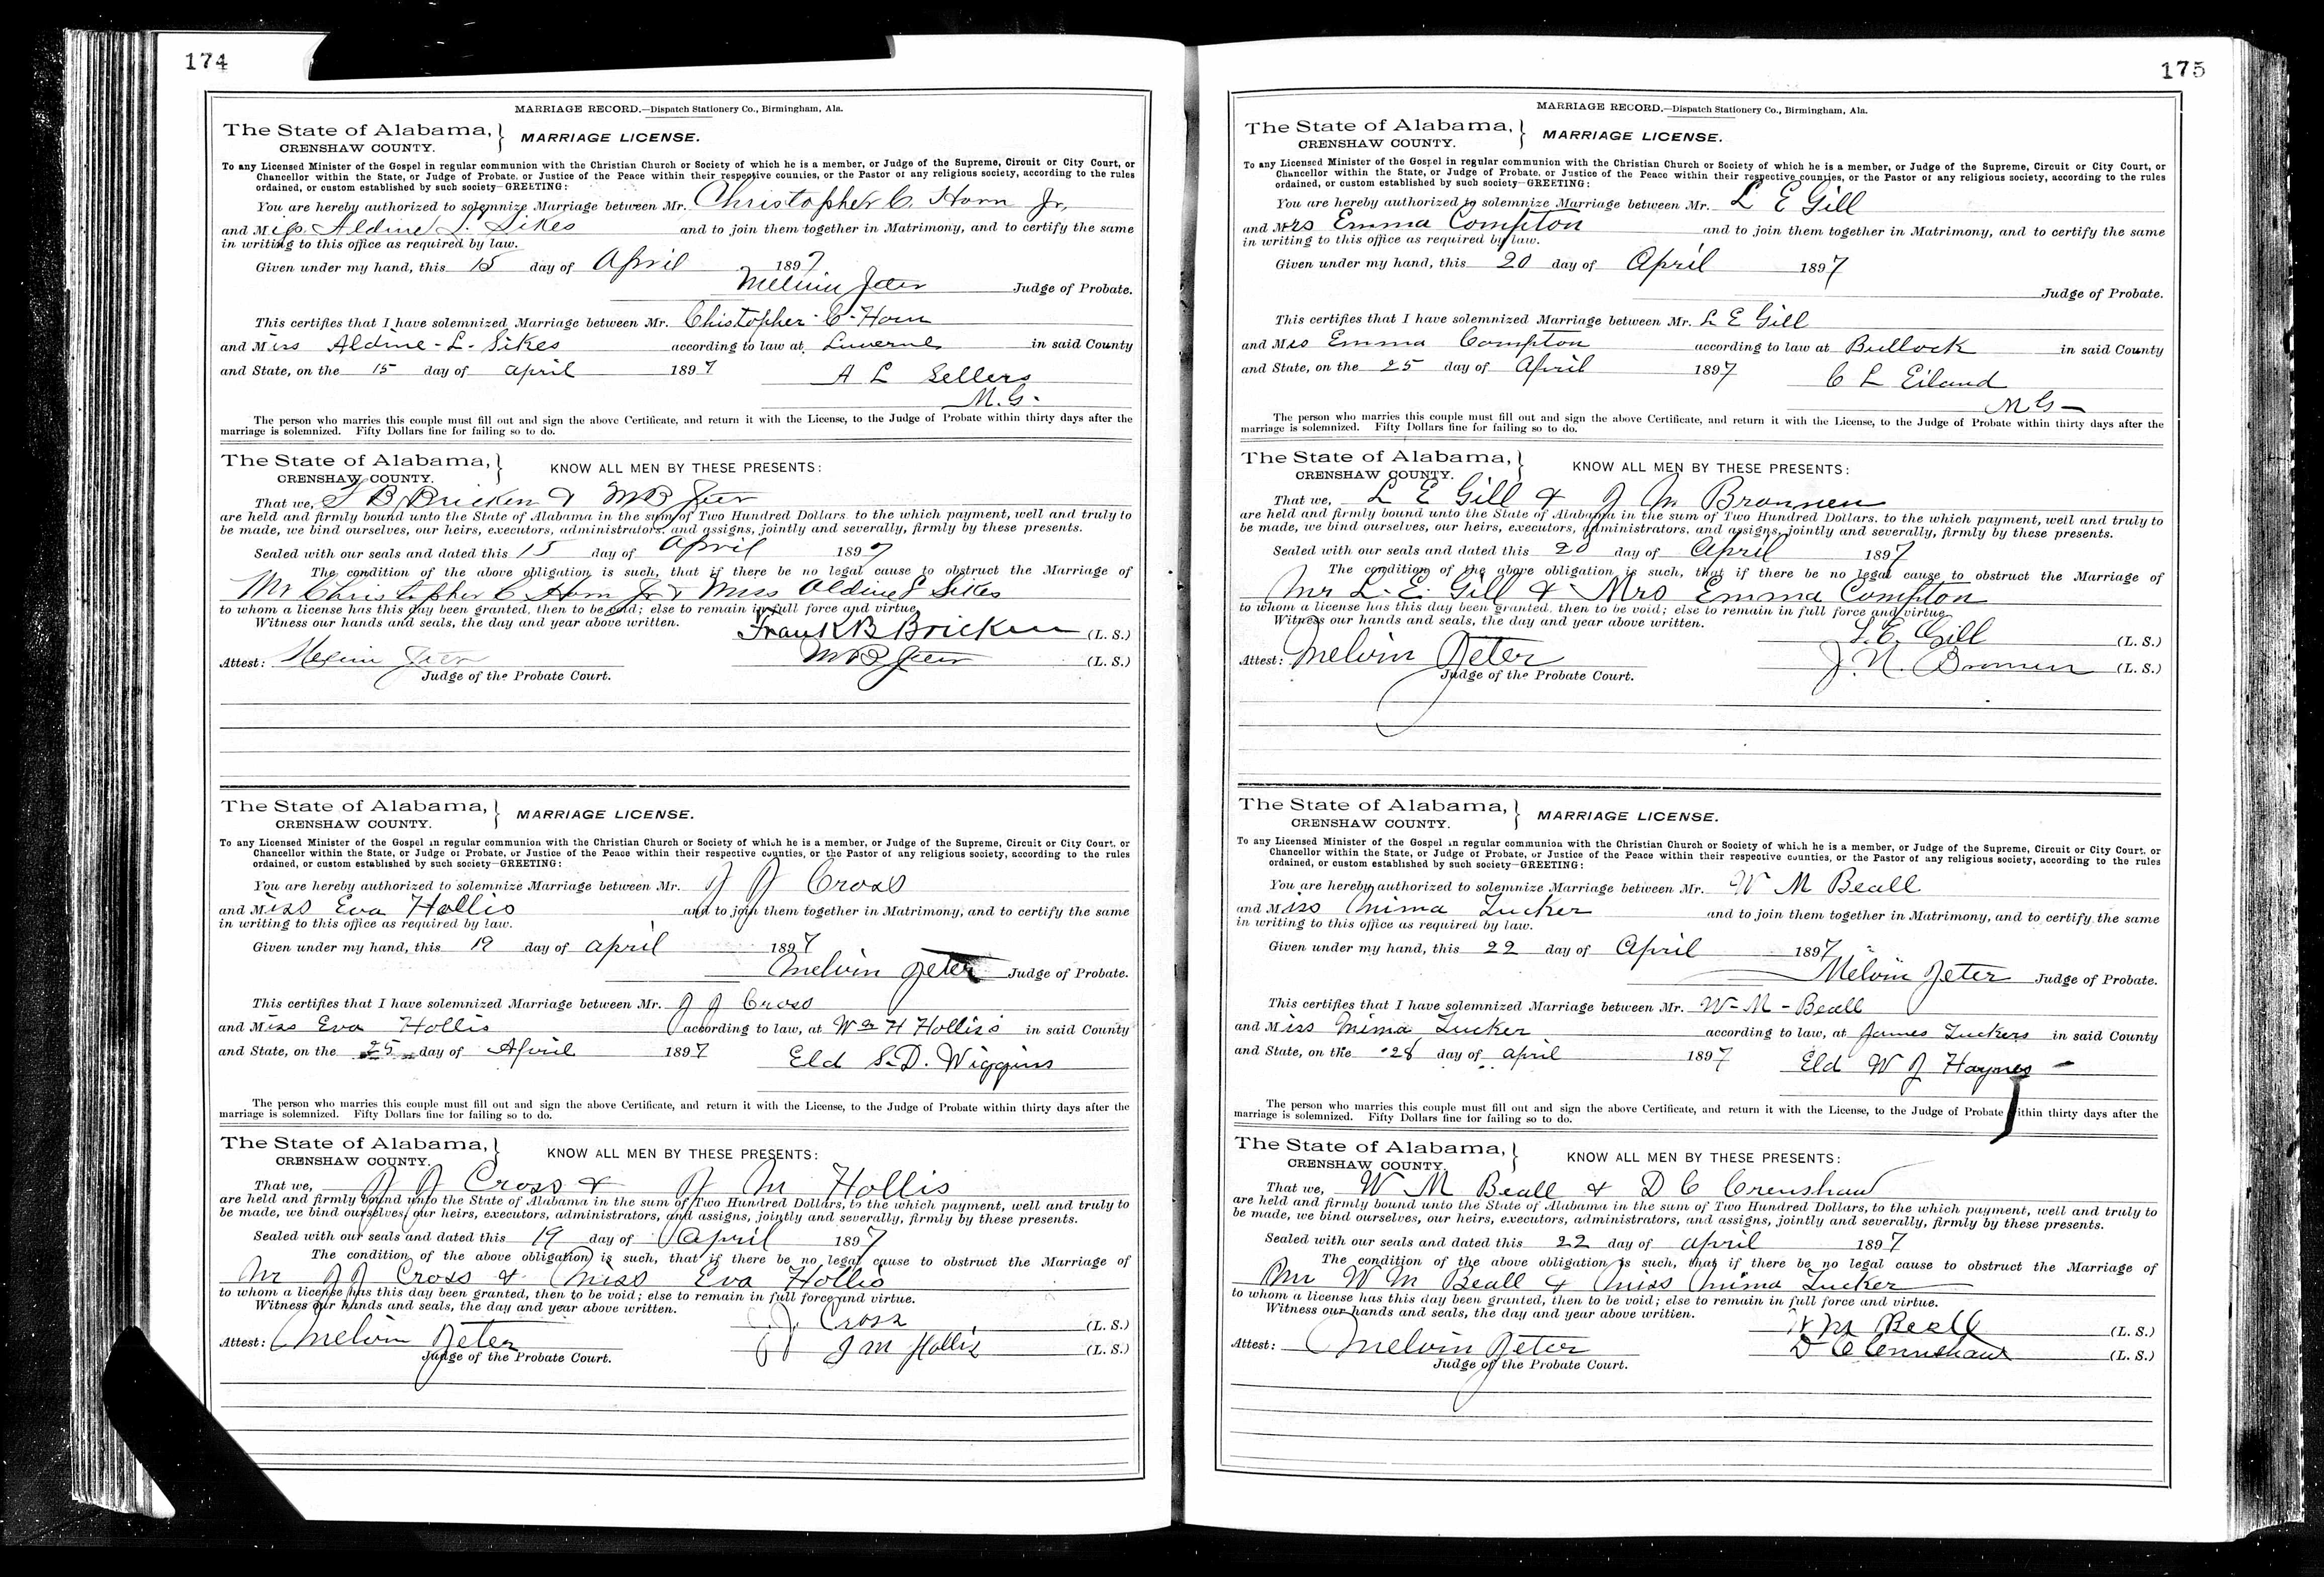 174
MARRIAGE RECORD.—Dispatch Stationery Co., Birmingham, Ala.
The State of Alabama, } MARRIAGE LICENSE.
CRENSHAW COUNTY.
To any Licensed Minister of the Gospel in regular communion with the Christian Church or Society of which he is a member, or Judge of the Supreme, Circuit or City Court, or
Chancellor within the State, or Judge of Probate, or Justice of the Peace within their respective counties, or the Pastor of any religious society, according to the rules
ordained, or custom established by such society—GREETING:
You are hereby authorized to solemnize Marriage between Mr. Christopher C. Horn Jr,
and Miss Aldine L. Sikes and to join them together in Matrimony, and to certify the same
in writing to this office as required by law.
Given under my hand, this 15 day of April 1897
Melvin Jeter Judge of Probate.
This certifies that I have solemnized Marriage between Mr. Chistopher C. Horn
and Miss Aldine-L. Sikes according to law at Luverne in said County
and State, on the 15 day of april 1897
A L Sellers
M.G.
The person who marries this couple must fill out and sign the above Certificate, and return it with the License, to the Judge of Probate within thirty days after the
marriage is solemnized. Fifty Dollars fine for failing so to do.
The State of Alabama, } KNOW ALL MEN BY THESE PRESENTS:
CRENSHAW COUNTY.
That we, B Bricken & M B Jeter
are held and firmly bound unto the State of Alabama in the sum of Two Hundred Dollars, to the which payment, well and truly to
be made, we bind ourselves, our heirs, executors, administrators, and assigns, jointly and severally, firmly by these presents.
Sealed with our seals and dated this 15 day of April 1897
The condition of the above obligation is such, that if there be no legal cause to obstruct the Marriage of
Mr Christopher C Horn Jr & Miss Aldine L Sikes
to whom a license has this day been granted, then to be void; else to remain in full force and virtue.
Witness our hands and seals, the day and year above written. Frank B Bricken (L. S.)
Attest: Melvin Jeter M B Jeter (L. S.)
Judge of the Probate Court.
The State of Alabama, } MARRIAGE LICENSE.
CRENSHAW COUNTY.
To any Licensed Minister of the Gospel in regular communion with the Christian Church or Society of which he is a member, or Judge of the Supreme, Circuit or City Court, or
Chancellor within the State, or Judge of Probate, or Justice of the Peace within their respective counties, or the Pastor of any religious society, according to the rules
ordained, or custom established by such society—GREETING:
You are hereby authorized to solemnize Marriage between Mr. J J Cross
and Miss Eva Hollis and to join them together in Matrimony, and to certify the same
in writing to this office as required by law.
Given under my hand, this 19 day of april 1897
Melvin Jeter Judge of Probate.
This certifies that I have solemnized Marriage between Mr. J J Cross
and Miss Eva Hollis according to law, at Wm H Hollis's in said County
and State, on the 25 day of April 1897
Eld S. D. Wiggins
The person who marries this couple must fill out and sign the above Certificate, and return it with the License, to the Judge of Probate within thirty days after the
marriage is solemnized. Fifty Dollars fine for failing so to do.
The State of Alabama, } KNOW ALL MEN BY THESE PRESENTS:
CRENSHAW COUNTY.
That we, J J Cross & J M Hollis
are held and firmly bound unto the State of Alabama in the sum of Two Hundred Dollars, to the which payment, well and truly to
be made, we bind ourselves, our heirs, executors, administrators, and assigns, jointly and severally, firmly by these presents.
Sealed with our seals and dated this 19 day of April 1897
The condition of the above obligation is such, that if there be no legal cause to obstruct the Marriage of
Mr J J Cross & Miss Eva Hollis
to whom a license has this day been granted, then to be void; else to remain in full force and virtue.
Witness our hands and seals, the day and year above written. J. J. Cross (L. S.)
Attest: Melvin Jeter J M Hollis (L. S.)
Judge of the Probate Court.
175
MARRIAGE RECORD.—Dispatch Stationery Co., Birmingham, Ala.
The State of Alabama, } MARRIAGE LICENSE.
CRENSHAW COUNTY.
To any Licensed Minister of the Gospel in regular communion with the Christian Church or Society of which he is a member, or Judge of the Supreme, Circuit or City Court, or
Chancellor within the State, or Judge of Probate, or Justice of the Peace within their respective counties, or the Pastor of any religious society, according to the rules
ordained, or custom established by such society—GREETING:
You are hereby authorized to solemnize Marriage between Mr. L E Gill
and Mrs Emma Compton and to join them together in Matrimony, and to certify the same
in writing to this office as required by law.
Given under my hand, this 20 day of April 1897
Judge of Probate.
This certifies that I have solemnized Marriage between Mr. L E Gill
and Mrs Emma Compton according to law at Bullock in said County
and State, on the 25 day of April 1897
C L Eiland
M G
The person who marries this couple must fill out and sign the above Certificate, and return it with the License, to the Judge of Probate within thirty days after the
marriage is solemnized. Fifty Dollars fine for failing so to do.
The State of Alabama, } KNOW ALL MEN BY THESE PRESENTS:
CRENSHAW COUNTY.
That we, L E Gill & J N Bronnen
are held and firmly bound unto the State of Alabama in the sum of Two Hundred Dollars, to the which payment, well and truly to
be made, we bind ourselves, our heirs, executors, administrators, and assigns, jointly and severally, firmly by these presents.
Sealed with our seals and dated this 20 day of April 1897
The condition of the above obligation is such, that if there be no legal cause to obstruct the Marriage of
Mr L. E. Gill & Mrs Emma Compton
to whom a license has this day been granted, then to be void; else to remain in full force and virtue.
Witness our hands and seals, the day and year above written. L. E. Gill (L. S.)
Attest: Melvin Jeter J. N. Bronnen (L. S.)
Judge of the Probate Court.
The State of Alabama, } MARRIAGE LICENSE.
CRENSHAW COUNTY.
To any Licensed Minister of the Gospel in regular communion with the Christian Church or Society of which he is a member, or Judge of the Supreme, Circuit or City Court, or
Chancellor within the State, or Judge of Probate, or Justice of the Peace within their respective counties, or the Pastor of any religious society, according to the rules
ordained, or custom established by such society—GREETING:
You are hereby authorized to solemnize Marriage between Mr. W M Beall
and Miss Mima Tucker and to join them together in Matrimony, and to certify the same
in writing to this office as required by law.
Given under my hand, this 22 day of April 1897
Melvin Jeter Judge of Probate.
This certifies that I have solemnized Marriage between Mr. W-M-Beall
and Miss Mima Tucker according to law, at James Tuckers in said County
and State, on the 28 day of april 1897
Eld W J Haynes
The person who marries this couple must fill out and sign the above Certificate, and return it with the License, to the Judge of Probate within thirty days after the
marriage is solemnized. Fifty Dollars fine for failing so to do.
The State of Alabama, } KNOW ALL MEN BY THESE PRESENTS:
CRENSHAW COUNTY.
That we, W M Beall & D C Crenshaw
are held and firmly bound unto the State of Alabama in the sum of Two Hundred Dollars, to the which payment, well and truly to
be made, we bind ourselves, our heirs, executors, administrators, and assigns, jointly and severally, firmly by these presents.
Sealed with our seals and dated this 22 day of april 1897
The condition of the above obligation is such, that if there be no legal cause to obstruct the Marriage of
Mr W M Beall & Miss Mima Tucker
to whom a license has this day been granted, then to be void; else to remain in full force and virtue.
Witness our hands and seals, the day and year above written. W M Beall (L. S.)
Attest: Melvin Jeter D C Crenshaw (L. S.)
Judge of the Probate Court.